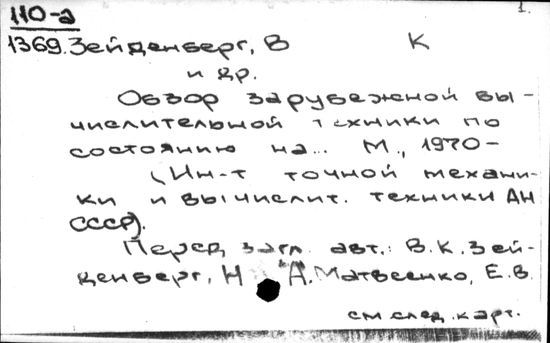 110-а
1.
1369. Зейденберг, В К
и др.
Обзор зарубежной вы-
числительной техники по
состоянию на... М., 1970-
(Ин-т точной механи-
ки и вычислит. техники АН
СССР).
Перед загл. авт.: В.К. Зей-
денберг, Н А. Матвеенко, Е.В.
см след. карт.